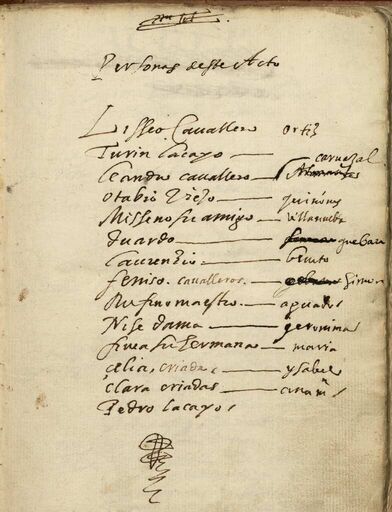 Personas deste Acto
Lisseo Cavallero ortiz
Turin lacayo
carvajal
leandro cavallero
otabio viejo quiñones
Misseno su amigo villanueba
duardo guebara
laurenzio benito
feniso cavalleros simon
Rufino maestro aguado
Nise dama geronima
finea su hermana maria
celia, criada ysabel
clara criadas ana m
Pedro lacayo